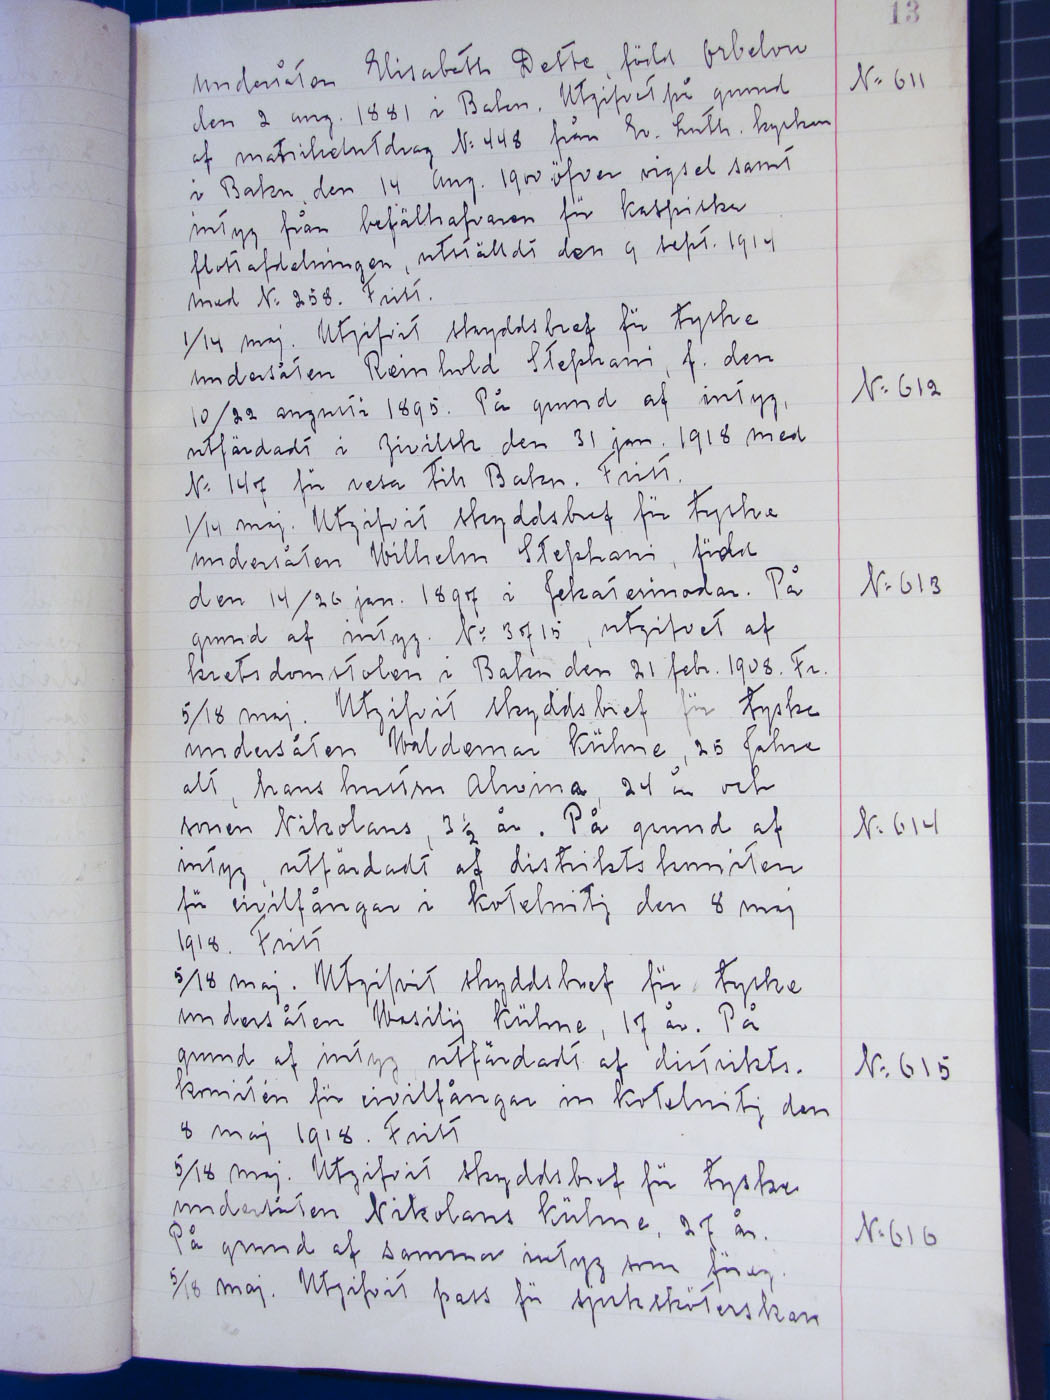 13
undersåten Elisabeth Dette, född Orbelow
N: 611
den 2 aug. 1881 i Baku. Utgifvet på grund
af matrikelutdrag N: 448 från Ev. Luth. kyrkan
i Baku den 14 Aug. 1900 öfver vigsel samt
intyg från befälhafvaren för Kaspiska
flottafdelningen, utställdt den 9 sept. 1914
med N: 258. Fritt.
1/14 maj. Utgifvit skyddsbref för tyske
undersåten Reinhold Stephani, f. den
N: 612
10/22 augusti 1895. På grund af intyg,
utfärdadt i den 31 jan. 1918 med
N: 147 för resa till Baku. Fritt.
1/14 maj. Utgifvit skyddsbref för tyske
undersåten Wilhelm Stephani, född
den 14/26 jan. 1897 i Jekaterinodar. På
N: 613
grund af intyg. N: 3715, utgifvet af
kretsdomstolen i Baku den 21 febr. 1908. Fr.
5/18 maj. Utgifvit skyddsbref för tyske
undersåten Waldemar Kühne, 25 Jahre
alt, hans hustru Alwina, 24 år och
sonen Nikolaus, 3 1/2 år. På grund af
N: 614
intyg, utfärdadt af distriktskomiten
för civilfångar i Kotelnitj den 8 maj
1918. Fritt
5/18 maj. Utgifvit skyddsbref för tyske
undersåten Wasilij Kühne, 17 år. På
grund af intyg utfärdadt af distrikts-
N: 615
komitén för civilfångar in Kotelnitj den
8 maj 1918. Fritt
5/18 maj. Utgifvit skyddsbref för tyske
undersåten Nikolaus Kühne, 27 år.
N: 616
På grund af samma intyg som föreg.
5/18 maj. Utgifvit pass för sjuksköterskan